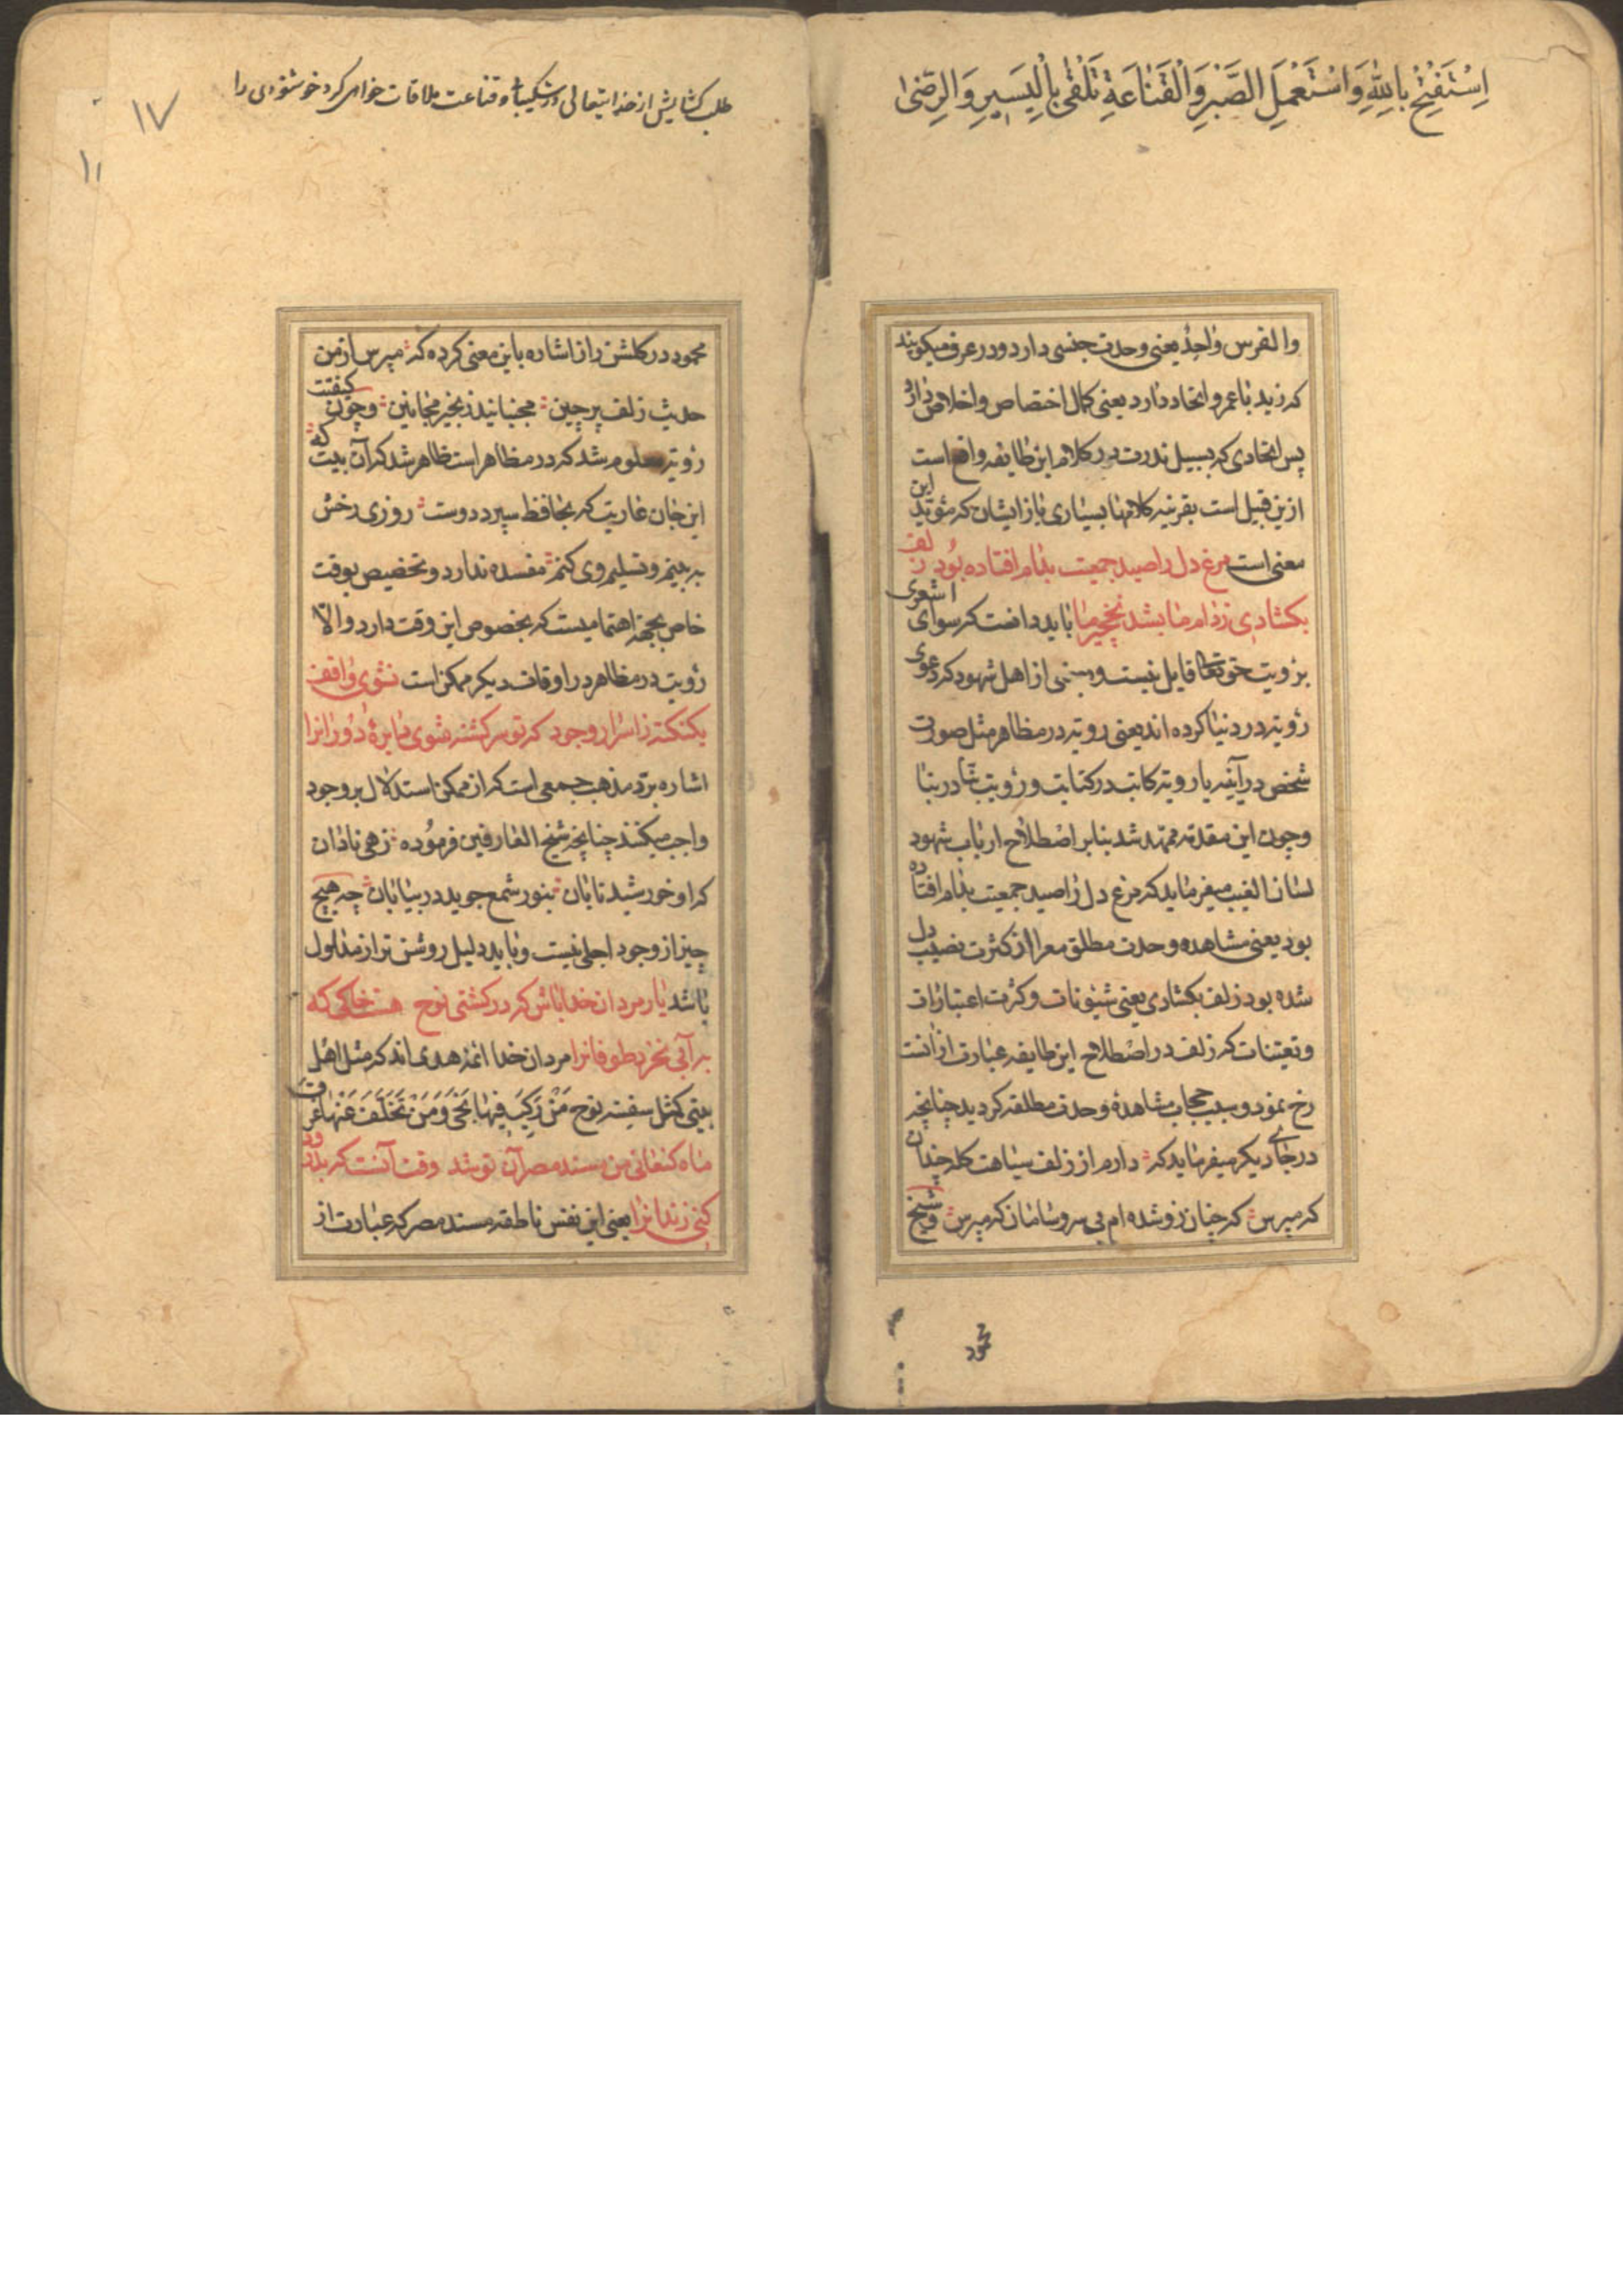 اِسْتَفْتِحْ بِاللّٰهِ وَاسْتَعْمِلِ الصَّبْرَ وَالْقَنَاعَةِ تَلْقٰی بِالْیَسیرِ وَالرِّضیٰ
والفرس واحد یعنی وحدت جنسی دارد و در عرف میکویند
که زید با عمرو اتحاد دارد یعنی کمال اختصاص و اخلاص دارد
پس اتحادی که بسبیل ندرت در کلام این طایفه واقع است
ازین قبیل است بقرینه کلامهای بسیاری باز ایشان که مؤید این
معنی است مرغ دل را صید جمعیت بدام افتاده بود زلف
بکشادی ز دام ما بشد نخچیر ما باید دانست که سوای اشعری
برؤیت حق تعالی قایل نیست و بعضی از اهل شهود که دعوی
رؤیة در دنیا کرده اند یعنی رویة در مظاهر مثل صورت
شخص در آینه یا رویة کاتب در کتابت و رؤیت بنا در بنا
و چون این مقدمه ممهد شد بنابر اصطلاح ارباب شهود
لسان الغیب میفرماید که مرغ دل را صید جمعیت بدام افتاده
بود یعنی مشاهده وحدت مطلق معرا از کثرت نصیب دل
شده بود زلف بکشادی یعنی شیونات و کثرت اعتبارات
و تعینات که زلف در اصطلاح این طایفه عبارت از آنست
رخ نمود و سبب حجاب مشاهدهٔ وحدت مطلقه کردید چنانچه
در جای دیکر میفرماید که دارم از زلف سیاهت کله چندان
که مپرس که چنان زو شده ام بی سر و سامان که مپرس و شیخ
محمود
طلب کشایش از خدایتعالی و شکیبائی و قناعت ملاقات خواهی کرد خوشنودی را
۱۷
۱۱
محمود در کلشن راز اشاره باین معنی کرده که مپرس از من
حدیث زلف پرچین مجنبانید زنجیر مجانین و چون کیفیت
رؤیة معلوم شد که در مظاهر است ظاهر شد که آن بیت که
این جان عاریت که بحافظ سپرد دوست روزی رخش
ببینم و تسلیم وی کنم مفسده ندارد و تخصیص بوقت
خاص بجهة اهتمامیست که بخصوص این وقت دارد والّا
رؤیت در مظاهر در اوقات دیکر ممکن است نشوی واقف
یکنکته ز اسرار وجود که تو سرکشته شوی دایرهٔ دوران را
اشاره برد مذهب جمعی است که از ممکن استدلال بر وجود
واجب میکنند چنانچه شیخ العارفین فرموده زهی نادان
که او خورشید تابان بنور شمع جوید در بیابان چه هیچ
چیز از وجود اجلی نیست و باید دلیل روشن تر از مدلول
باشد یار مردان خدا باش که در کشتی نوح هست خاکی که
به آبی نخرد طوفانرا مردان خدا ائمه هدی اند که مثل اهل
بیتی کمثل سفینه نوح مَنْ رَکِبَ فیها نَجیٰ وَمَنْ تَخَلَّفَ عَنْها غَرِقَ
ماه کنعانی من مسند مصر آن تو شد وقت آنست که بدرود
کنی زندانرا یعنی این نفس ناطقه مسند مصر که عبارت از